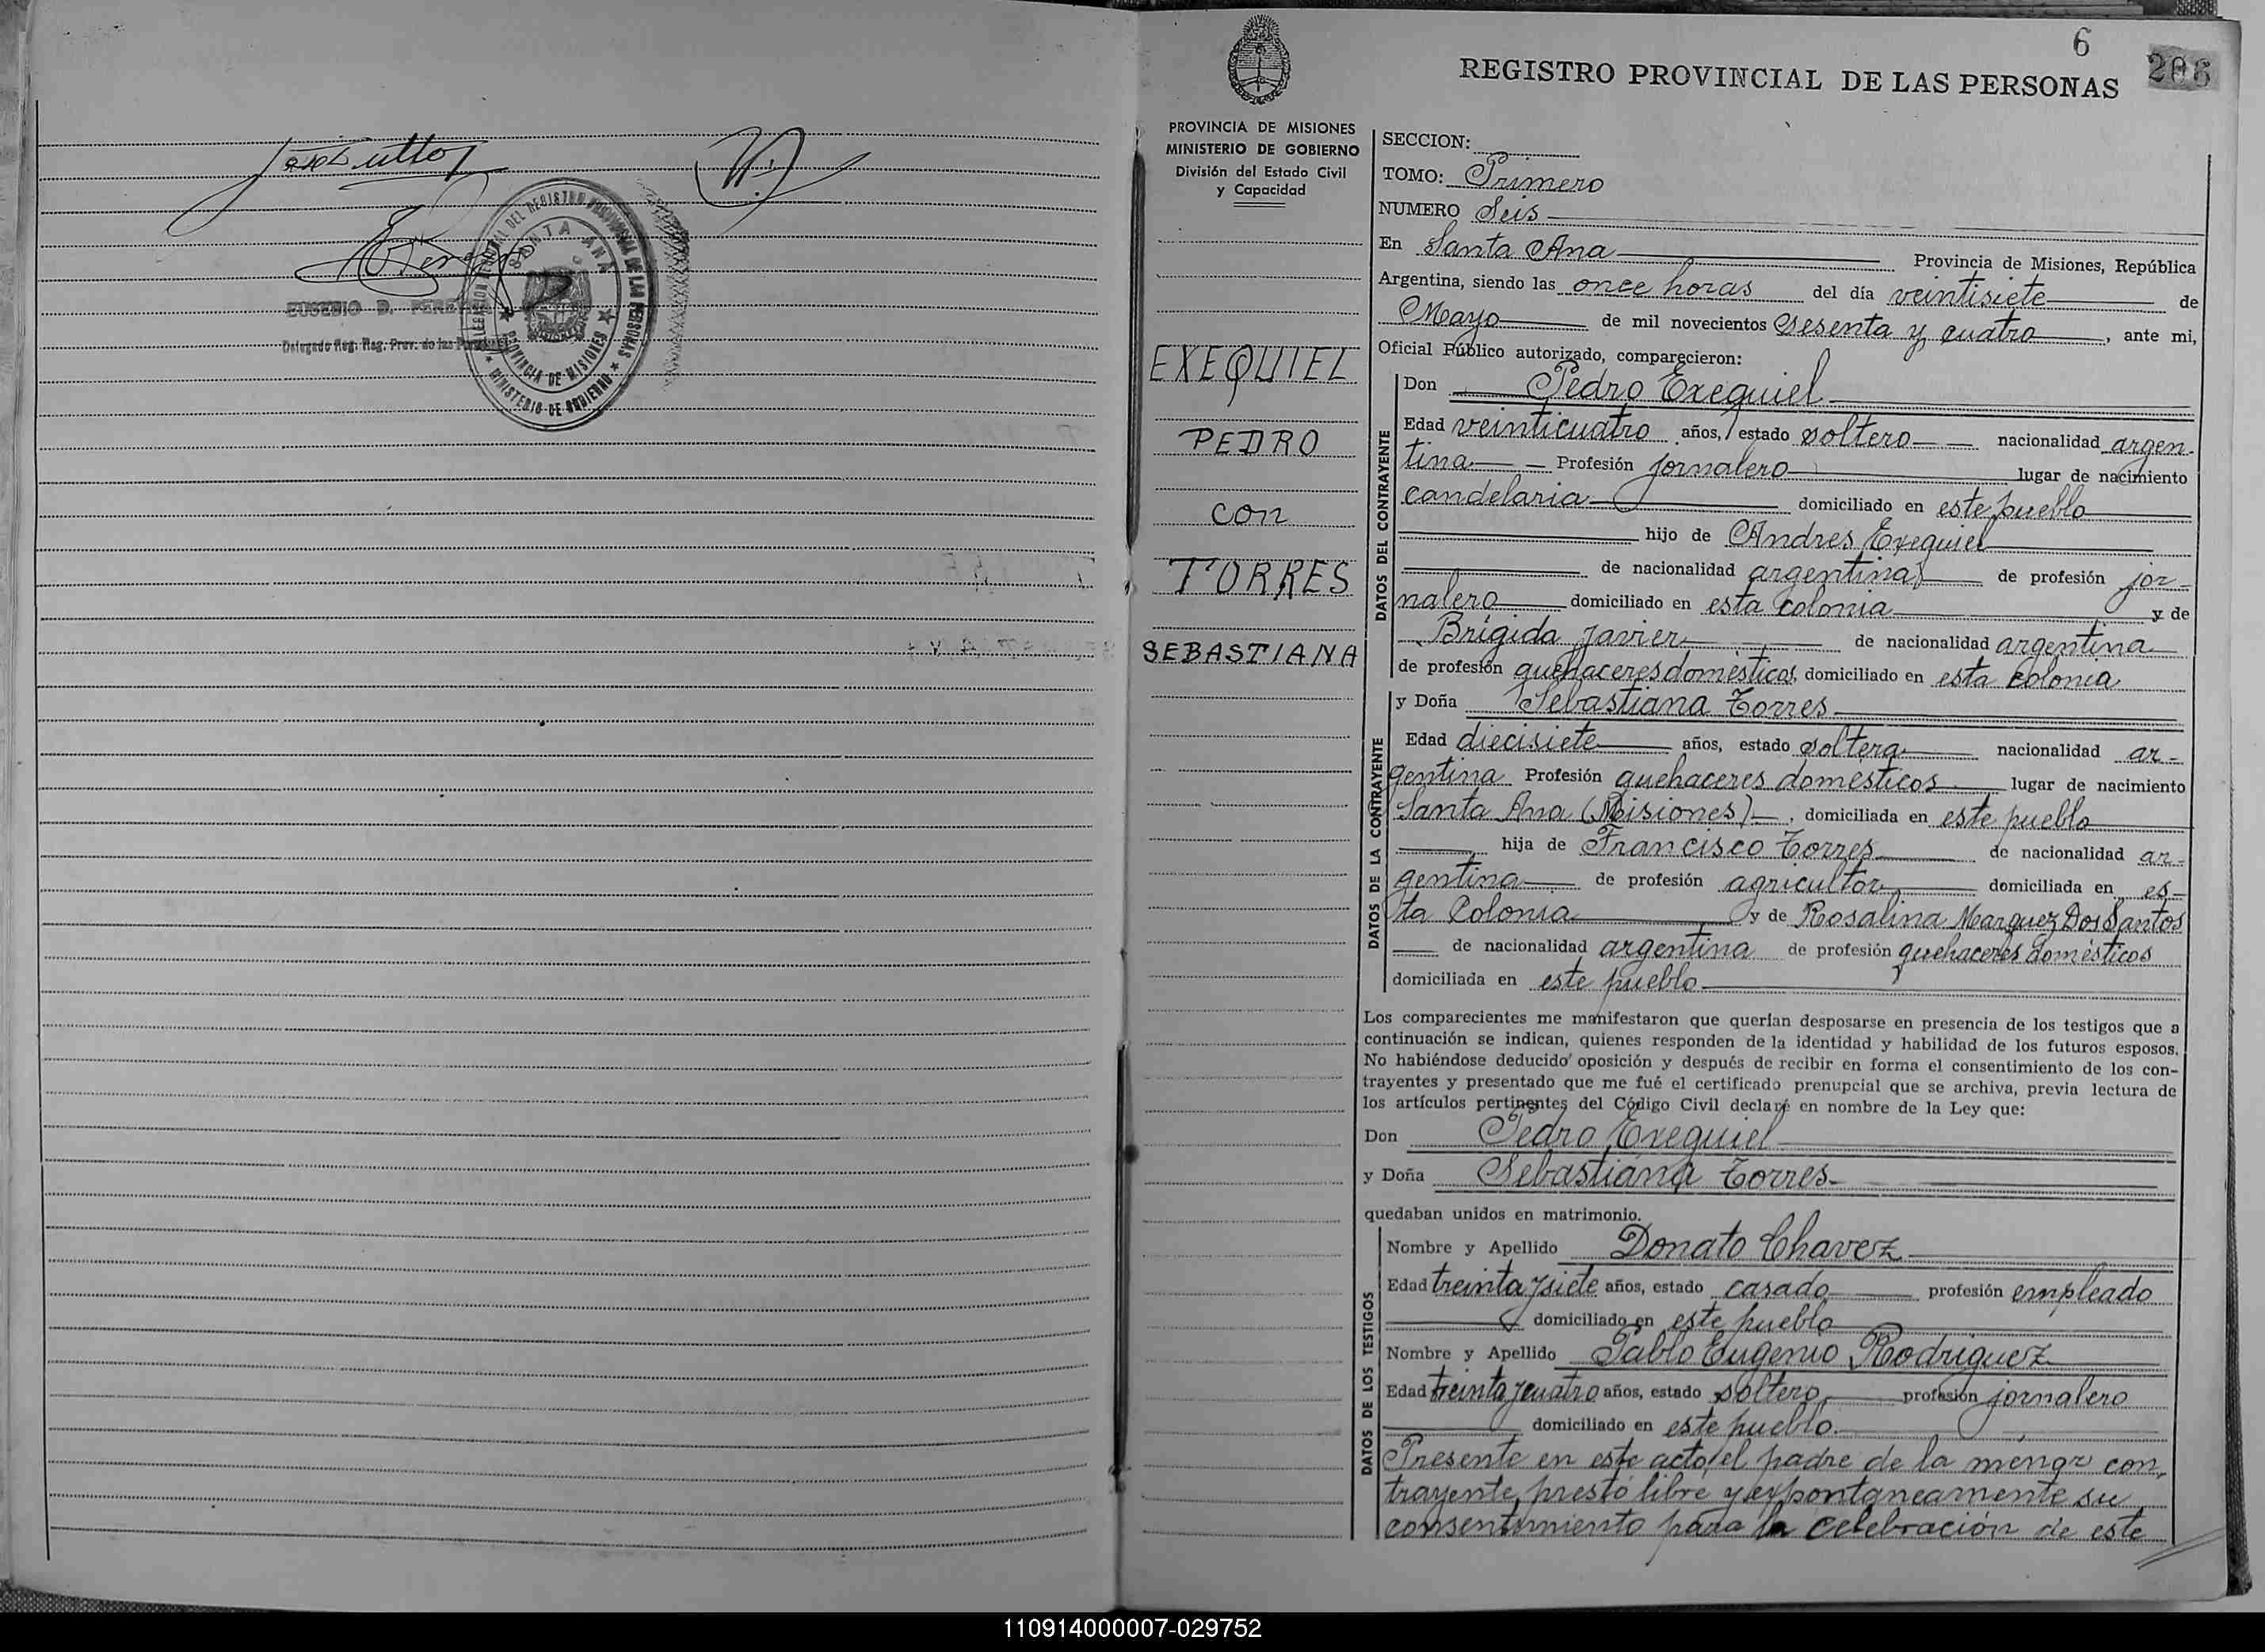 EUGENIO D. PEREYRA
Delegado Reg. Reg. Prov. de las Personas
DELEGACION REGIONAL DEL REGISTRO PROVINCIAL DE LAS PERSONAS
SANTA ANA
PROVINCIA DE MISIONES
MINISTERIO DE GOBIERNO
6
206
REGISTRO PROVINCIAL DE LAS PERSONAS
PROVINCIA DE MISIONES
MINISTERIO DE GOBIERNO
División del Estado Civil
y Capacidad
EXEQUIEL
PEDRO
con
TORRES
SEBASTIANA
SECCION:
TOMO: Primero
NUMERO Seis
En Santa Ana Provincia de Misiones, República
Argentina, siendo las once horas del día veintisiete de
Mayo de mil novecientos Sesenta y cuatro, ante mi,
Oficial Público autorizado, comparecieron:
DATOS DEL CONTRAYENTE
Don Pedro Exequiel
Edad veinticuatro años, estado soltero nacionalidad argen-
tina Profesión jornalero lugar de nacimiento
candelaria domiciliado en este pueblo
hijo de Andres Exequiel
de nacionalidad argentina de profesión jor-
nalero domiciliado en esta colonia y de
Brígida Javier de nacionalidad argentina
de profesión quehaceres domésticos, domiciliado en esta colonia
DATOS DE LA CONTRAYENTE
y Doña Sebastiana Torres
Edad diecisiete años, estado soltera nacionalidad ar-
gentina Profesión quehaceres domésticos lugar de nacimiento
Santa Ana (Misiones), domiciliada en este pueblo
hija de Francisco Torres de nacionalidad ar-
gentina de profesión agricultor domiciliada en es-
ta Colonia y de Rosalina Marquez Dos Santos
de nacionalidad argentina de profesión quehaceres domésticos
domiciliada en este pueblo
Los comparecientes me manifestaron que querían desposarse en presencia de los testigos que a
continuación se indican, quienes responden de la identidad y habilidad de los futuros esposos.
No habiéndose deducido oposición y después de recibir en forma el consentimiento de los con-
trayentes y presentado que me fué el certificado prenupcial que se archiva, previa lectura de
los artículos pertinentes del Código Civil declaré en nombre de la Ley que:
Don Pedro Exequiel
y Doña Sebastiana Torres
quedaban unidos en matrimonio.
DATOS DE LOS TESTIGOS
Nombre y Apellido Donato Chavez
Edad treinta y siete años, estado casado profesión empleado
domiciliado en este pueblo
Nombre y Apellido Pablo Eugenio Rodriguez
Edad treinta y cuatro años, estado soltero profesión jornalero
domiciliado en este pueblo.
Presente en este acto el padre de la menor con-
trayente, prestó libre y expontaneamente su
consentimiento para la celebración de este
110914000007-029752